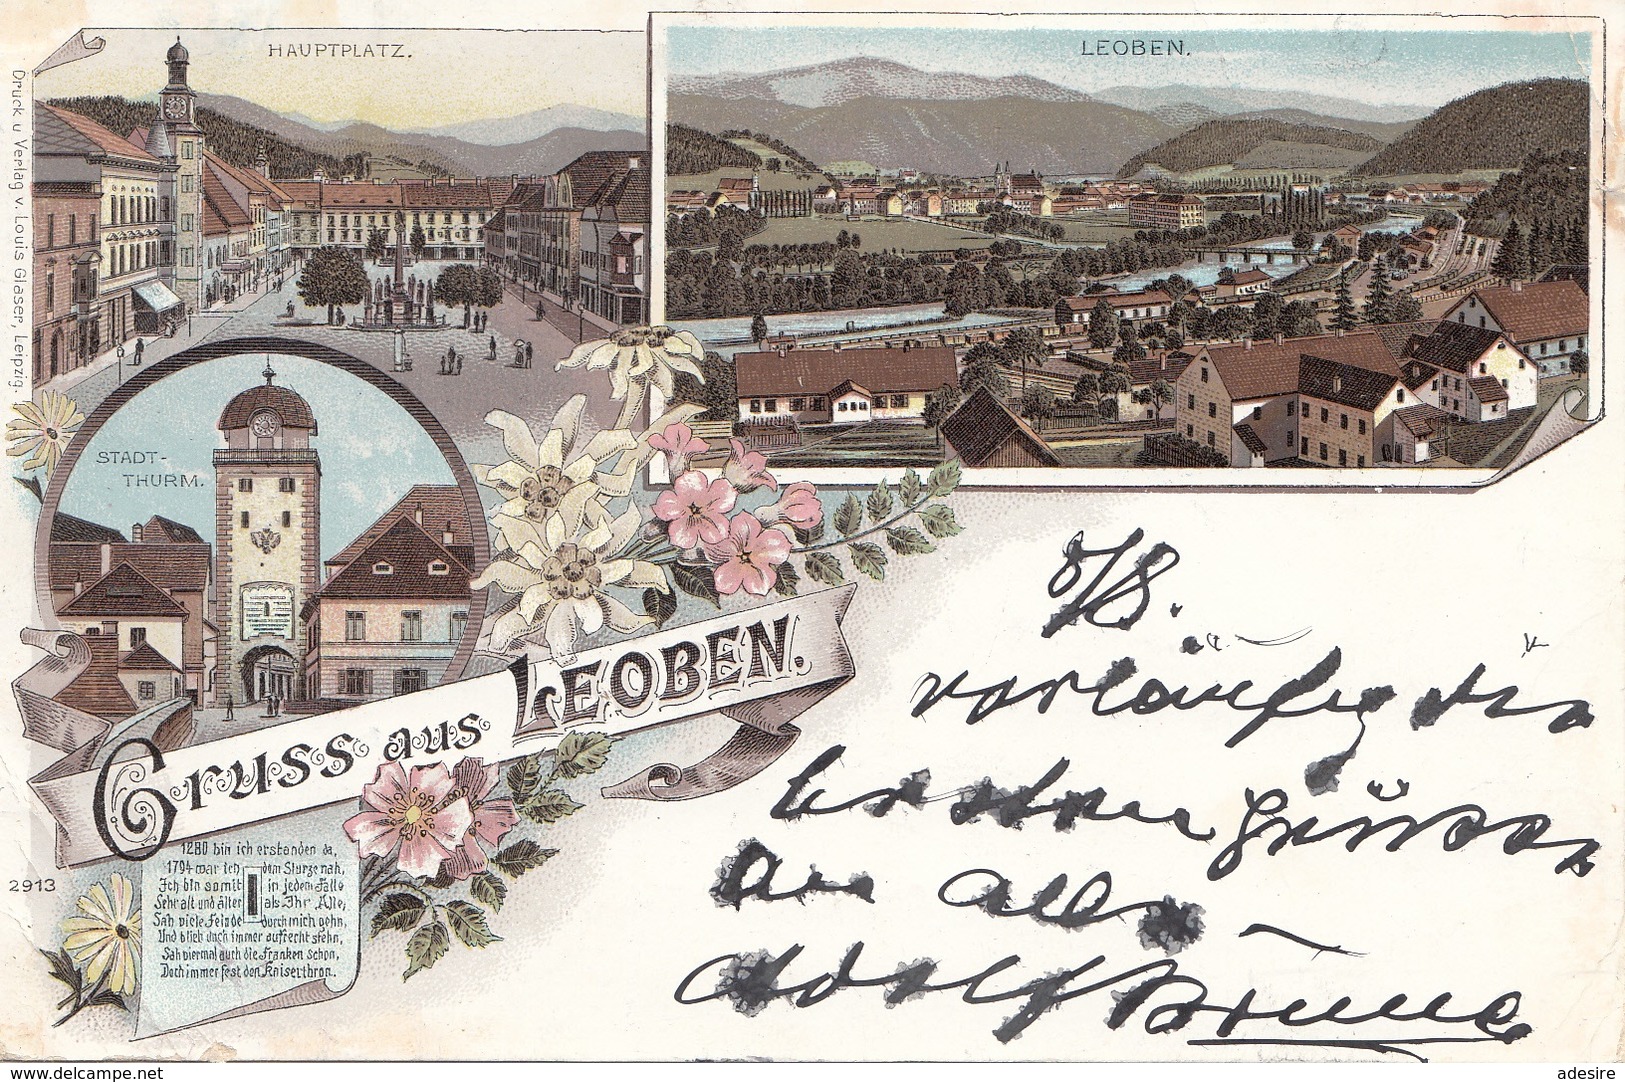 HAUPTPLATZ.
LEOBEN.
Druck u Verlag v. Louis Glaser, Leipzig.
STADT-
THURM.
Gruss aus LEOBEN.
2913
1280 bin ich erstanden da,
1794 war ich dem Sturze nah,
Ich bin somit in jedem Falle
Sehr alt und älter als Ihr Alle,
Sah viele Feinde durch mich gehn,
Und blieb doch immer aufrecht stehn,
Sah viermal auch die Franken schon,
Doch immer fest den Kaiserthron.
8/8.
vorläufig die
besten Grüsse
an alle
Adolf
www.delcampe.net
adesire